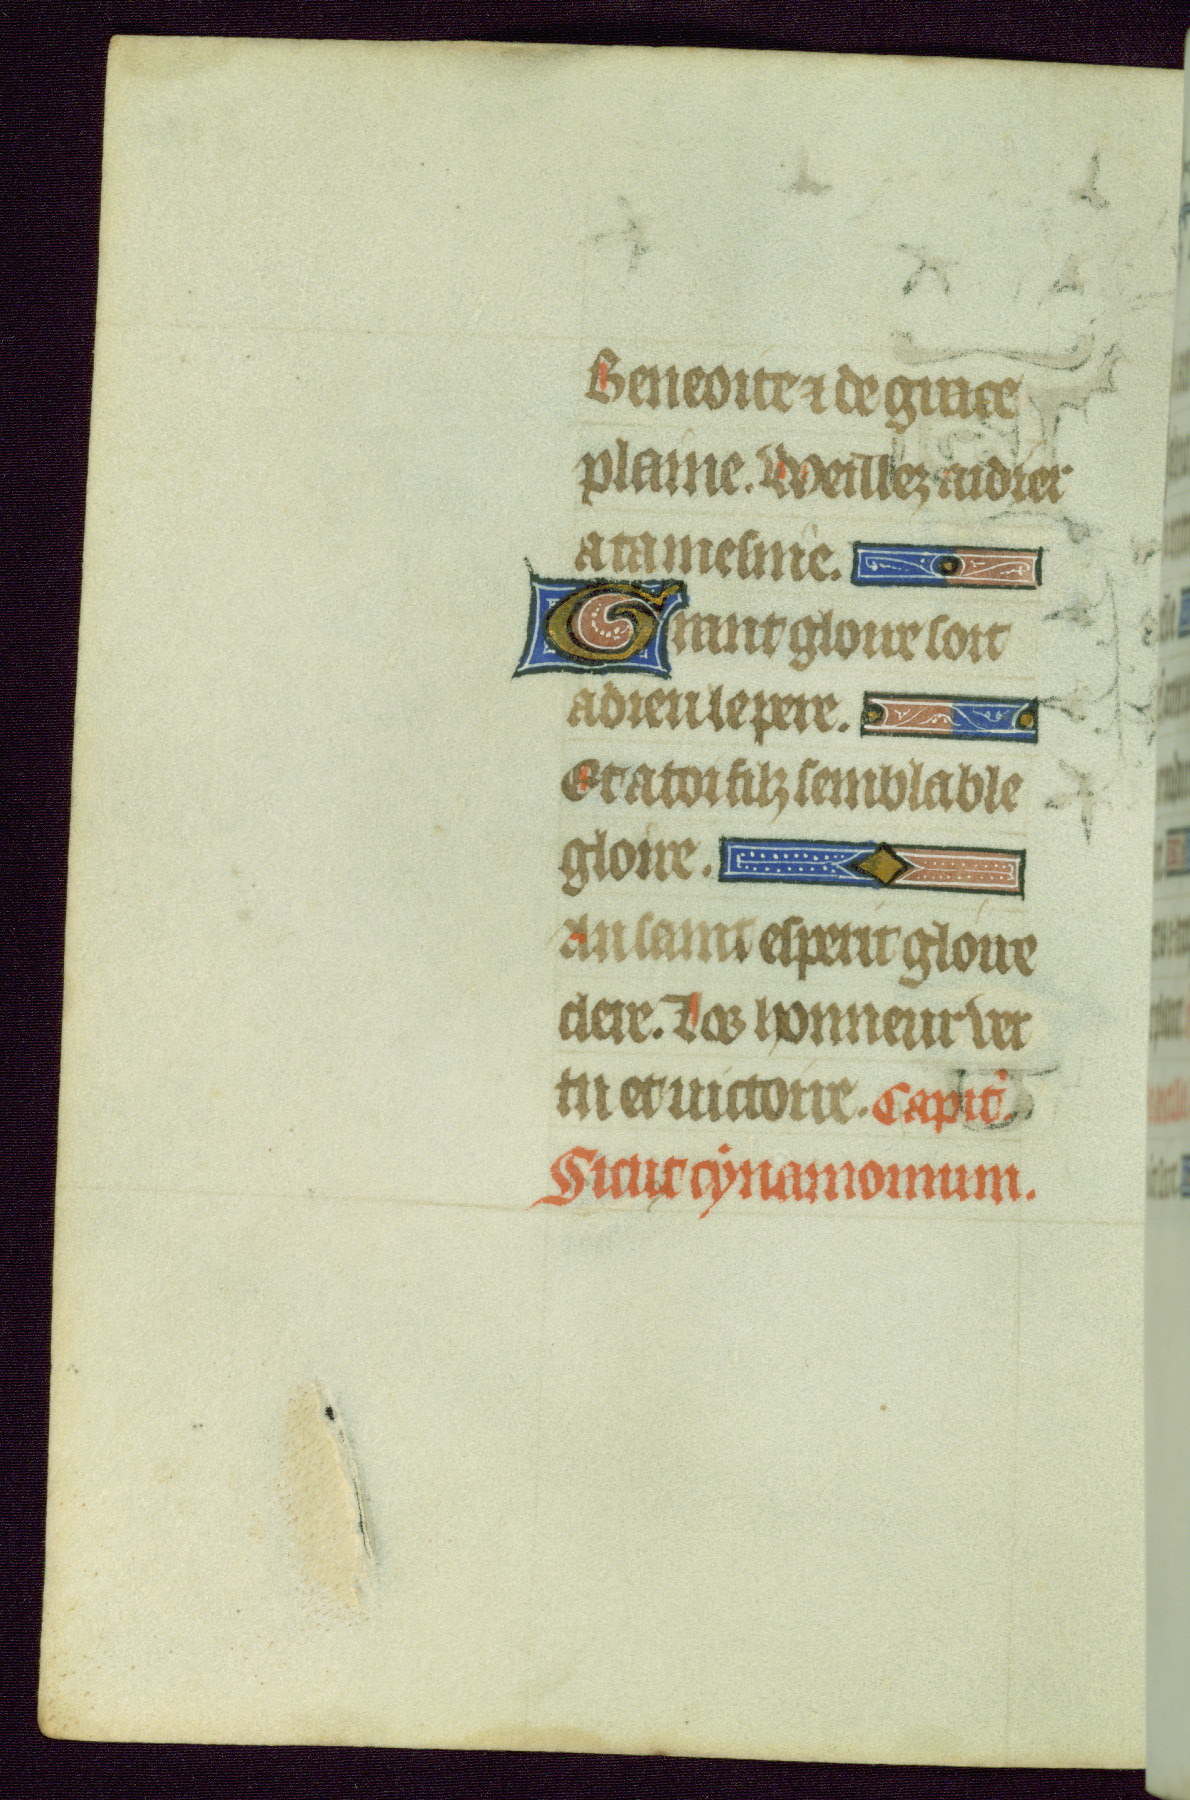 Beneoite ⁊ de grace
plaine. Weillez aidier
a ta mesnie.
Grant gloire soit
a dieu le pere.
Et a ton filz semblable
gloire.
Au saint esperit gloire
clere. Los honneur ver
tu et uictoire. Capit̃.
Sicut cynamomum.